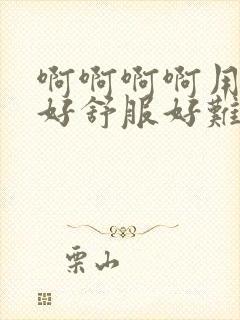 啊啊啊啊用
好舒服好難
栗山